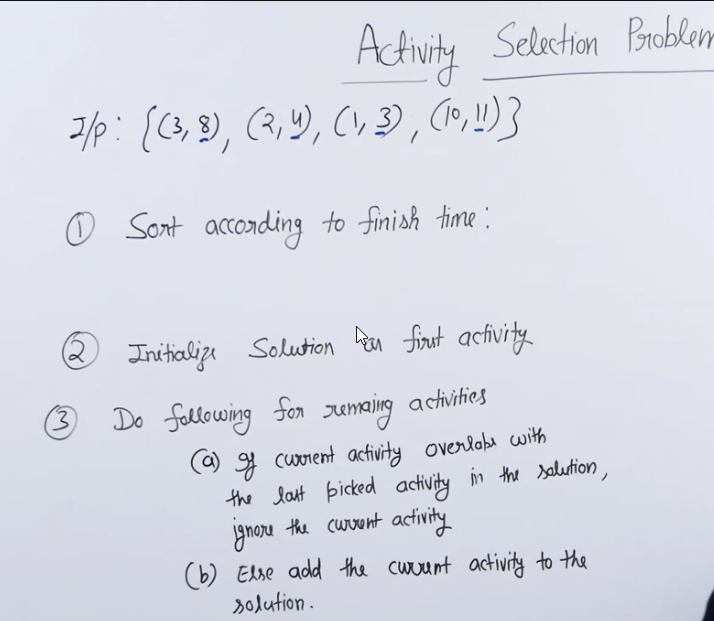 Activity Selection Problem
I/p: {(3, 8), (2, 4), (1, 3), (10, 11)}
① Sort according to finish time:
② Initialize Solution as first activity
③ Do following for remaing activities
(a) If current activity overlabs with
the last picked activity in the solution,
ignore the current activity
(b) Else add the current activity to the
solution.